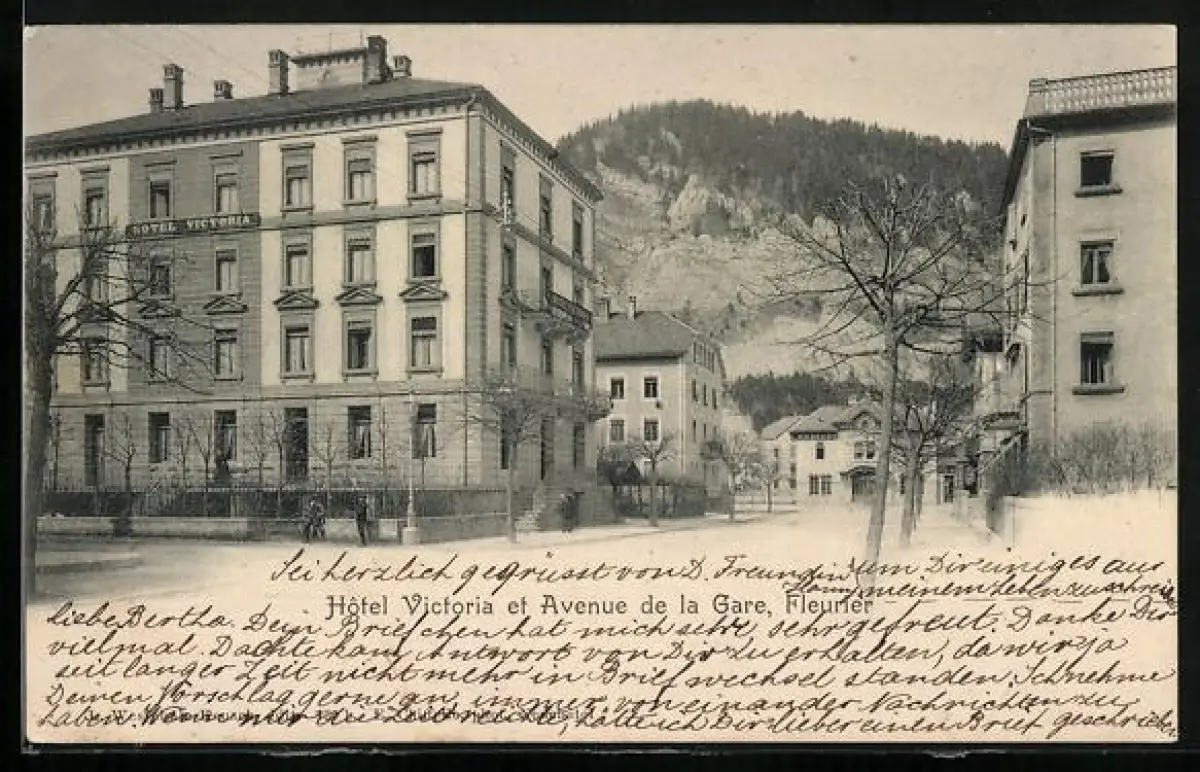 HOTEL VICTORIA
Sei herzlich gegrüsst von D. Freundin
um Dir einiges aus
meinem Leben zu schreiben
Hôtel Victoria et Avenue de la Gare, Fleurier
Liebe Bertha. Dein Briefchen hat mich sehr, sehr gefreut. Danke Dir
vielmal. Dachte kaum, Antwort von Dir zu erhalten, da wir ja
seit langer Zeit nicht mehr in Briefwechsel standen. Ich nehme
Deinen Vorschlag gerne an, immer von einander Nachrichten zu
haben. Wenn mir die Zeit reichte, hätte ich Dir lieber einen Brief geschrieben